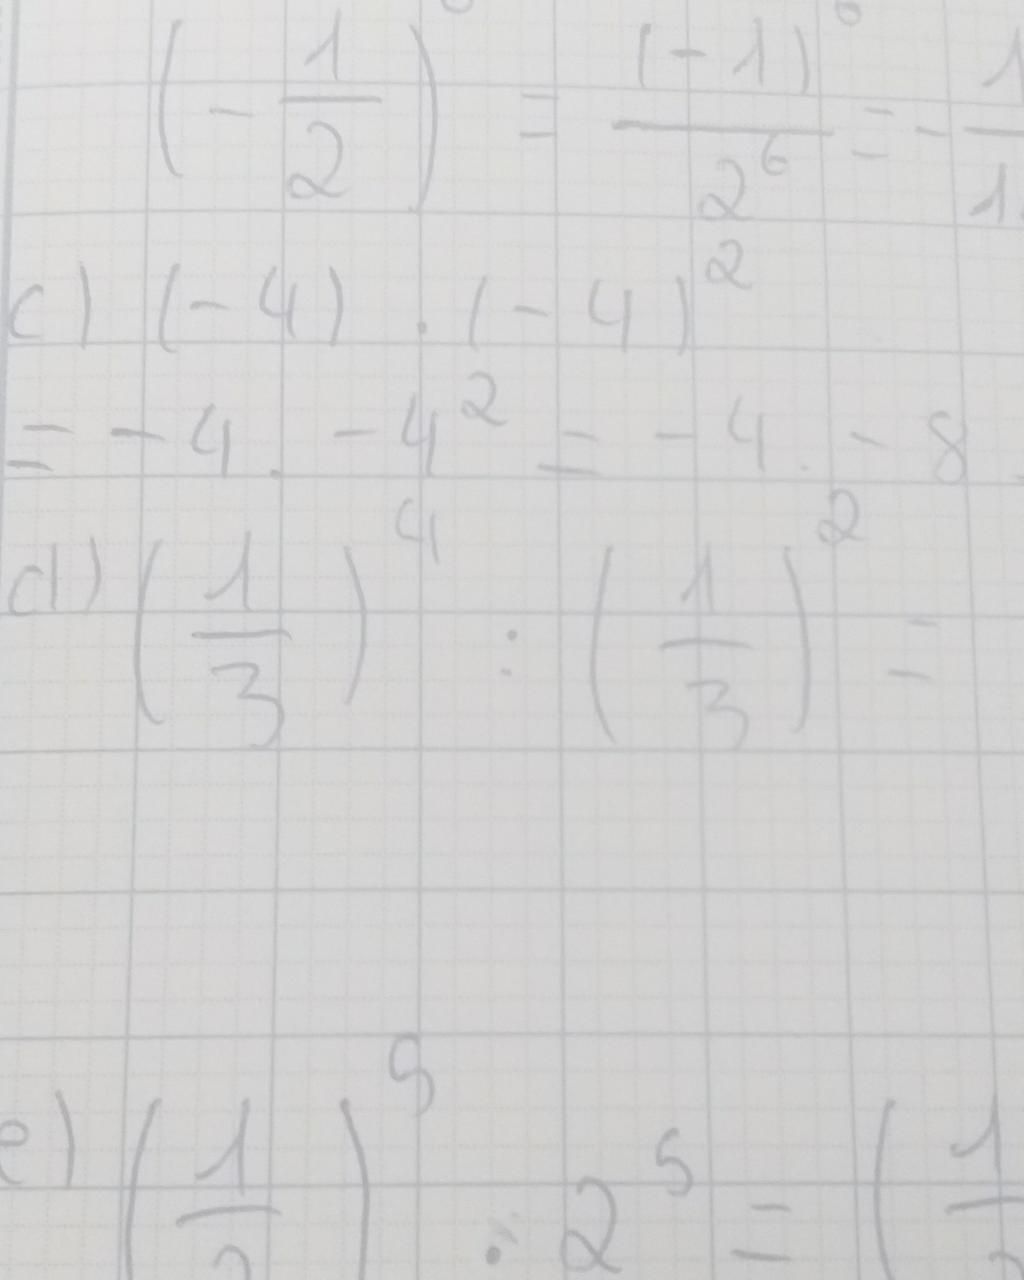 (-1/2)^6 = (-1)^6/2^6 = -1/1
c) (-4) · (-4)^2
= -4 . -4^2 = -4 . -8
d) (1/3)^4 : (1/3)^2 =
e) (1/2)^5 : 2^5 = (1/2